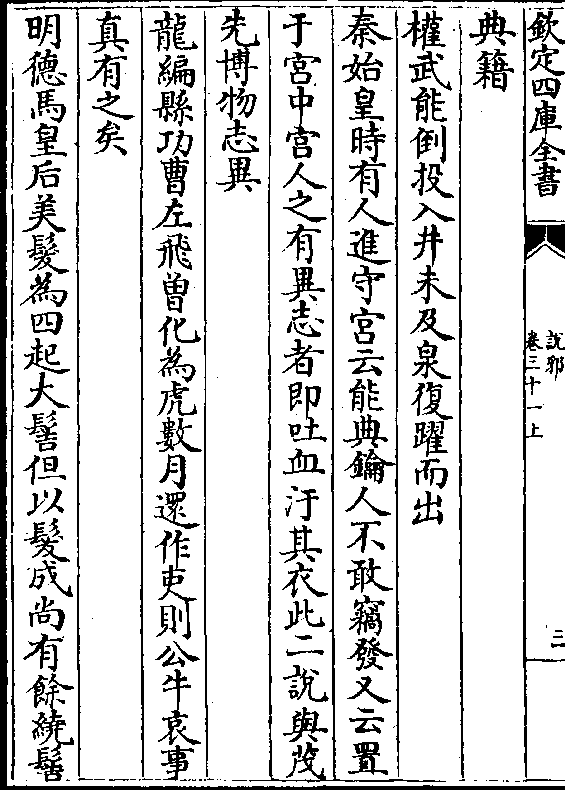 欽定四庫全書
說郛
卷三十一上
三
典籍
權武能倒投入井未及泉復躍而出
秦始皇時有人進守宮云能典鑰人不敢竊發又云置
于宮中宮人之有異志者即吐血汙其衣此二說與茂
先博物志異
龍編縣功曹左飛曾化為虎數月還作吏則公牛哀事
真有之矣
明德馬皇后美髮為四起大髻但以髮成尚有餘繞髻